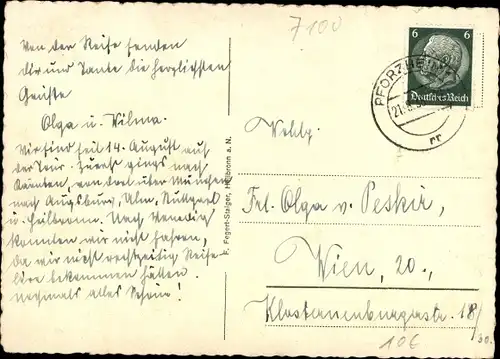 7100
Von der Reise senden
dir und Tante die herzlichsten
Grüße
Olga u. Wilma.
Wir sind seit 14. August auf
der Tour. Zuerst gings nach
Kärnten, von dort über München
nach Augsburg, Ulm, Stuttgart
u. Heilbronn. Nach Venedig
konnten wir nicht fahren,
da wir nicht rechtzeitig Reise-
bekommen hätten.
nochmals alles Schöne!
F. Fegert-Staiger, Heilbronn a. N.
6 6
Deutsches Reich
PFORZHEIM
21.8.
rr
Wohlg.
Frl. Olga v. Peskir,
Wien, 20.,
Klosterneuburgerstr. 18/30.
10€